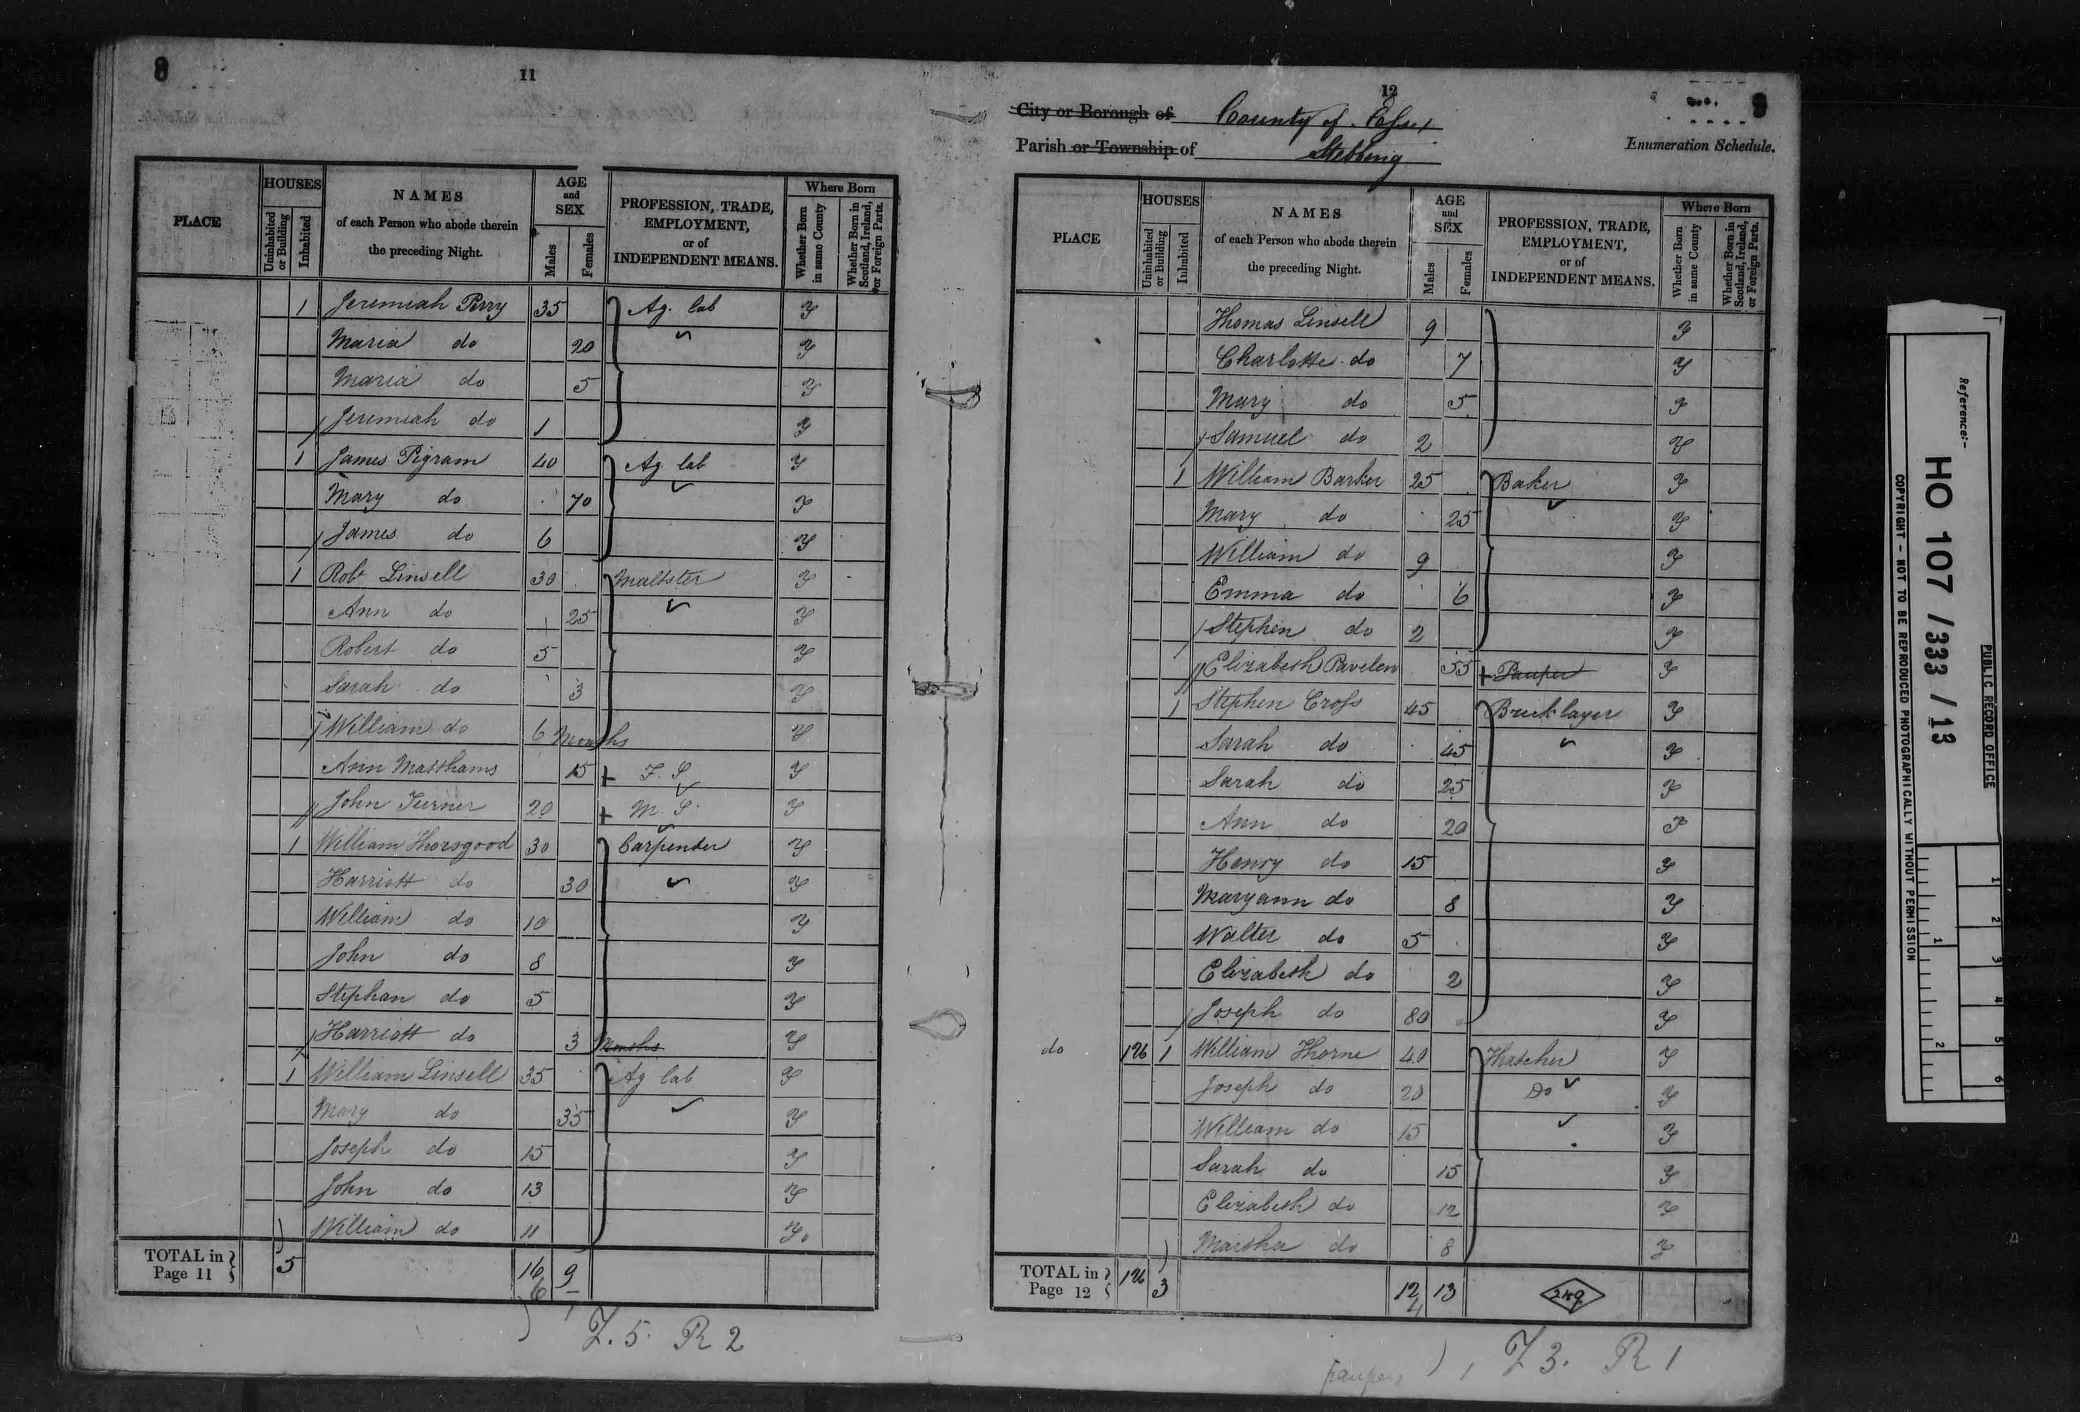 8
11
PLACE
HOUSES
Uninhabited or Building
Inhabited
NAMES
of each Person who abode therein
the preceding Night.
AGE
and
SEX
Males
Females
PROFESSION, TRADE,
EMPLOYMENT,
or of
INDEPENDENT MEANS.
Where Born
Whether Born in same County
Whether Born in Scotland, Ireland, or Foreign Parts.
1 Jeremiah Perry 35 Ag. lab Y
Maria do 20 Y
Maria do 5 Y
Jeremiah do 1 Y
1 James Pigram 40 Ag lab Y
Mary do 70 Y
James do 6 Y
1 Robt Linsell 30 Maltster Y
Ann do 25 Y
Robert do 5 Y
Sarah do 3 Y
William do 6 Months Y
Ann Matthams 15 + F. S Y
John Turner 20 + M. S. Y
1 William Thorogood 30 Carpender Y
Harriott do 30 Y
William do 10 Y
John do 8 Y
Stephan do 5 Y
Harriott do 3 Months Y
1 William Linsell 35 Ag lab Y
Mary do 35 Y
Joseph do 15 Y
John do 13 Y
William do 11 Y
TOTAL in Page 11 5 16 9
6
Z. 5. R 2
12
9
City or Borough of County of Essex
Parish or Township of Stebbing
Enumeration Schedule.
PLACE
HOUSES
Uninhabited or Building
Inhabited
NAMES
of each Person who abode therein
the preceding Night.
AGE
and
SEX
Males
Females
PROFESSION, TRADE,
EMPLOYMENT,
or of
INDEPENDENT MEANS.
Where Born
Whether Born in same County
Whether Born in Scotland, Ireland, or Foreign Parts.
Thomas Linsell 9 Y
Charlotte do 7 Y
Mary do 5 Y
Samuel do 2 Y
1 William Barker 25 Baker Y
Mary do 25 Y
William do 9 Y
Emma do 6 Y
Stephen do 2 Y
Elizabeth 55 + Pauper Y
1 Stephen Cross 45 Bricklayer Y
Sarah do 45 Y
Sarah do 25 Y
Ann do 20 Y
Henry do 15 Y
Maryann do 8 Y
Walter do 5 Y
Elizabeth do 2 Y
Joseph do 80 Y
do 1 William Thorne 40 Thatcher Y
Joseph do 20 Do Y
William do 15 Y
Sarah do 15 Y
Elizabeth do 12 Y
Martha do 8 Y
TOTAL in Page 12 3 12 13
4
Z 3. R 1
paupers
Reference:-
HO 107 / 333 / 13
PUBLIC RECORD OFFICE
COPYRIGHT - NOT TO BE REPRODUCED PHOTOGRAPHICALLY WITHOUT PERMISSION
1 2 3 4 5 6
1 2